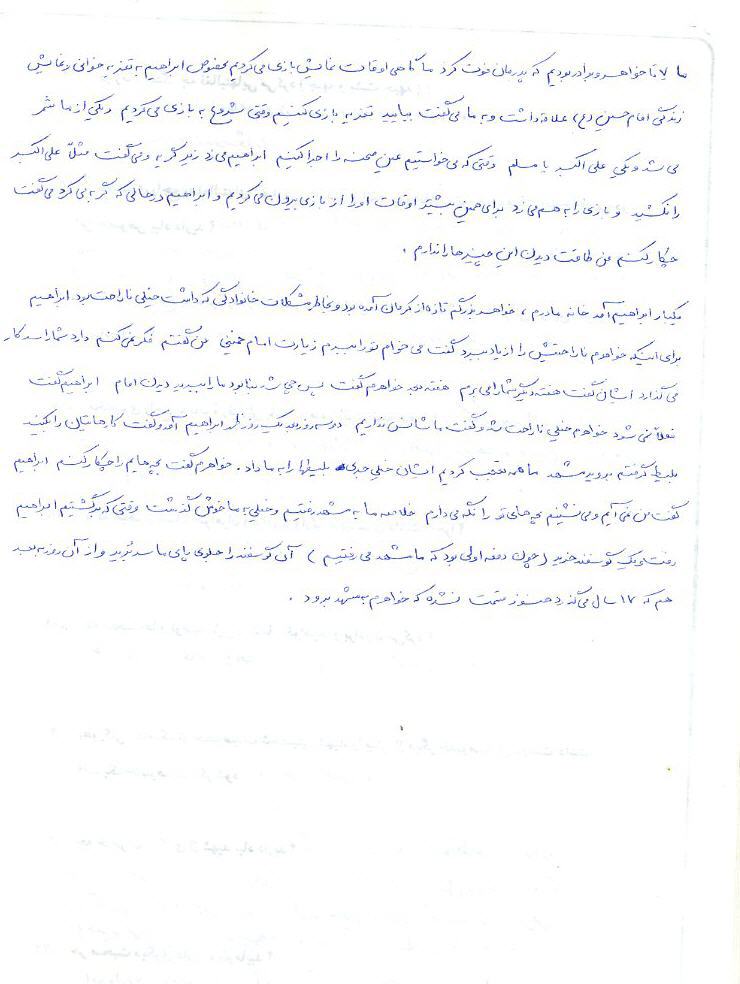 ما ۷ تا خواهر و برادر بودیم که پدرمان فوت کرد ما گاهی اوقات نمایش بازی می کردیم بخصوص ابراهیم به تعزیه خوانی و نمایش
زندگی امام حسین (ع) علاقه داشت و به ما می گفت بیایید تعزیه بازی کنیم وقتی شروع به بازی می کردیم و یکی از ما شمر
می شد و یکی علی اکبر یا مسلم وقتی که می خواستیم عین صحنه را اجرا کنیم ابراهیم می زد زیر گریه و می گفت مثلاً علی اکبر
را نکشید و بازی را به هم می زد برای همین بیشتر اوقات او را از بازی بیرون می کردیم و ابراهیم در حالی که گریه می کرد می گفت
چکار کنم من طاقت دیدن این چیزها را ندارم .
یکبار ابراهیم آمد خانه مادرم ، خواهر بزرگم تازه از کرمان آمده بود و بخاطر مشکلات خانوادگی که داشت خیلی ناراحت بود ابراهیم
برای اینکه خواهرم ناراحتیش را از یاد ببرد گفت می خوام تو را ببرم زیارت امام خمینی من گفتم فکر نمی کنم دارد شما را سر کار
می گذارد ایشان گفت هفته دیگر شما را می برم هفته بعد خواهرم گفت پس چی شد بنا بود ما را ببرید دیدن امام ابراهیم گفت
فعلاً نمی شود خواهرم خیلی ناراحت شد و گفت ما شانس نداریم دو سه روز بعد یک روز ابراهیم آمد و گفت کارهایتان را بکنید
بلیط گرفتم بروید مشهد ما همه تعجب کردیم ایشان خیلی جدی بلیطها را به ما داد . خواهرم گفت بچه هایم را چکار کنم ابراهیم
گفت من نمی آیم و می نشینم بچه های تو را نگه می دارم خلاصه ما به مشهد رفتیم و خیلی به ما خوش گذشت وقتی که برگشتیم ابراهیم
رفت و یک گوسفند خرید (چون دفعه اولی بود که ما مشهد می رفتیم ) آن گوسفند را جلوی پای ما سر برید و از آن روز به بعد
هم که ۱۷ سال می گذرد هنوز قسمت نشده که خواهرم به مشهد برود .